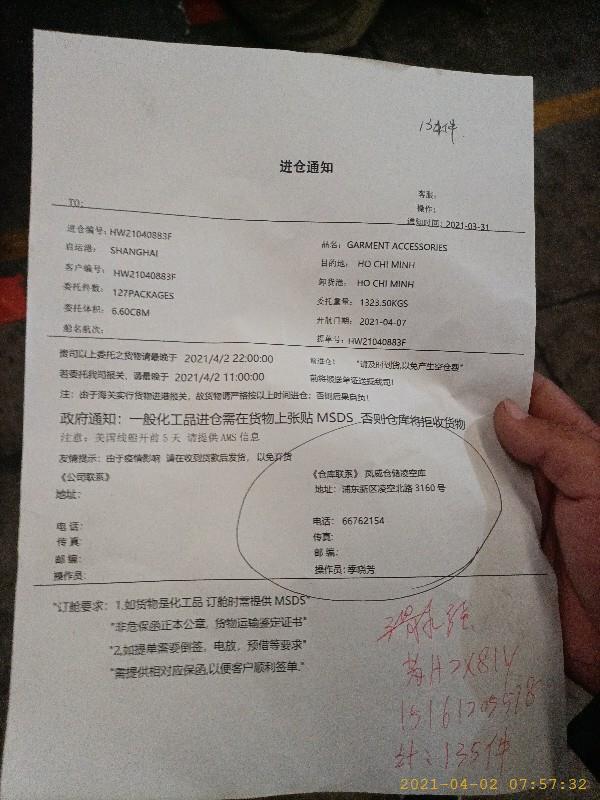 135件
进仓通知
客服:
操作:
TO:
通知时间: 2021-03-31
进仓编号: HW21040883F
品名: GARMENT ACCESSORIES
启运港: SHANGHAI
目的地: HO CHI MINH
客户编号: HW21040883F
卸货港: HO CHI MINH
委托件数: 127PACKAGES
委托重量: 1323.50KGS
委托体积: 6.60CBM
开航日期: 2021-04-07
船名航次:
提单号: HW21040883F
贵司以上委托之货物请最晚于 2021/4/2 22:00:00
前进仓! "请及时到货,以免产生空仓费"
若委托我司报关, 请最晚于 2021/4/2 11:00:00
前将报关单证送抵我司!
注: 由于海关实行货物进港报关, 故货物请严格按以上时间进仓; 否则后果自负!
政府通知: 一般化工品进仓需在货物上张贴 MSDS 否则仓库将拒收货物
注意: 美国线船开前 5 天 请提供 AMS 信息
友情提示: 由于疫情影响 请在收到货款后发货, 以免弃货
《公司联系》
《仓库联系》 凤威仓储凌空库
地址:
地址: 浦东新区凌空北路 3160 号
电话:
电话: 66762154
传真:
传真:
邮编:
邮编:
操作员:
操作员: 季晓芳
"订舱要求: 1.如货物是化工品 订舱时需提供 MSDS"
"非危保函正本公章, 货物运输鉴定证书"
"2.如提单需要倒签, 电放, 预借等要求"
"需提供相对应保函,以便客户顺利签单."
计: 135件
2021-04-02 07:57:32